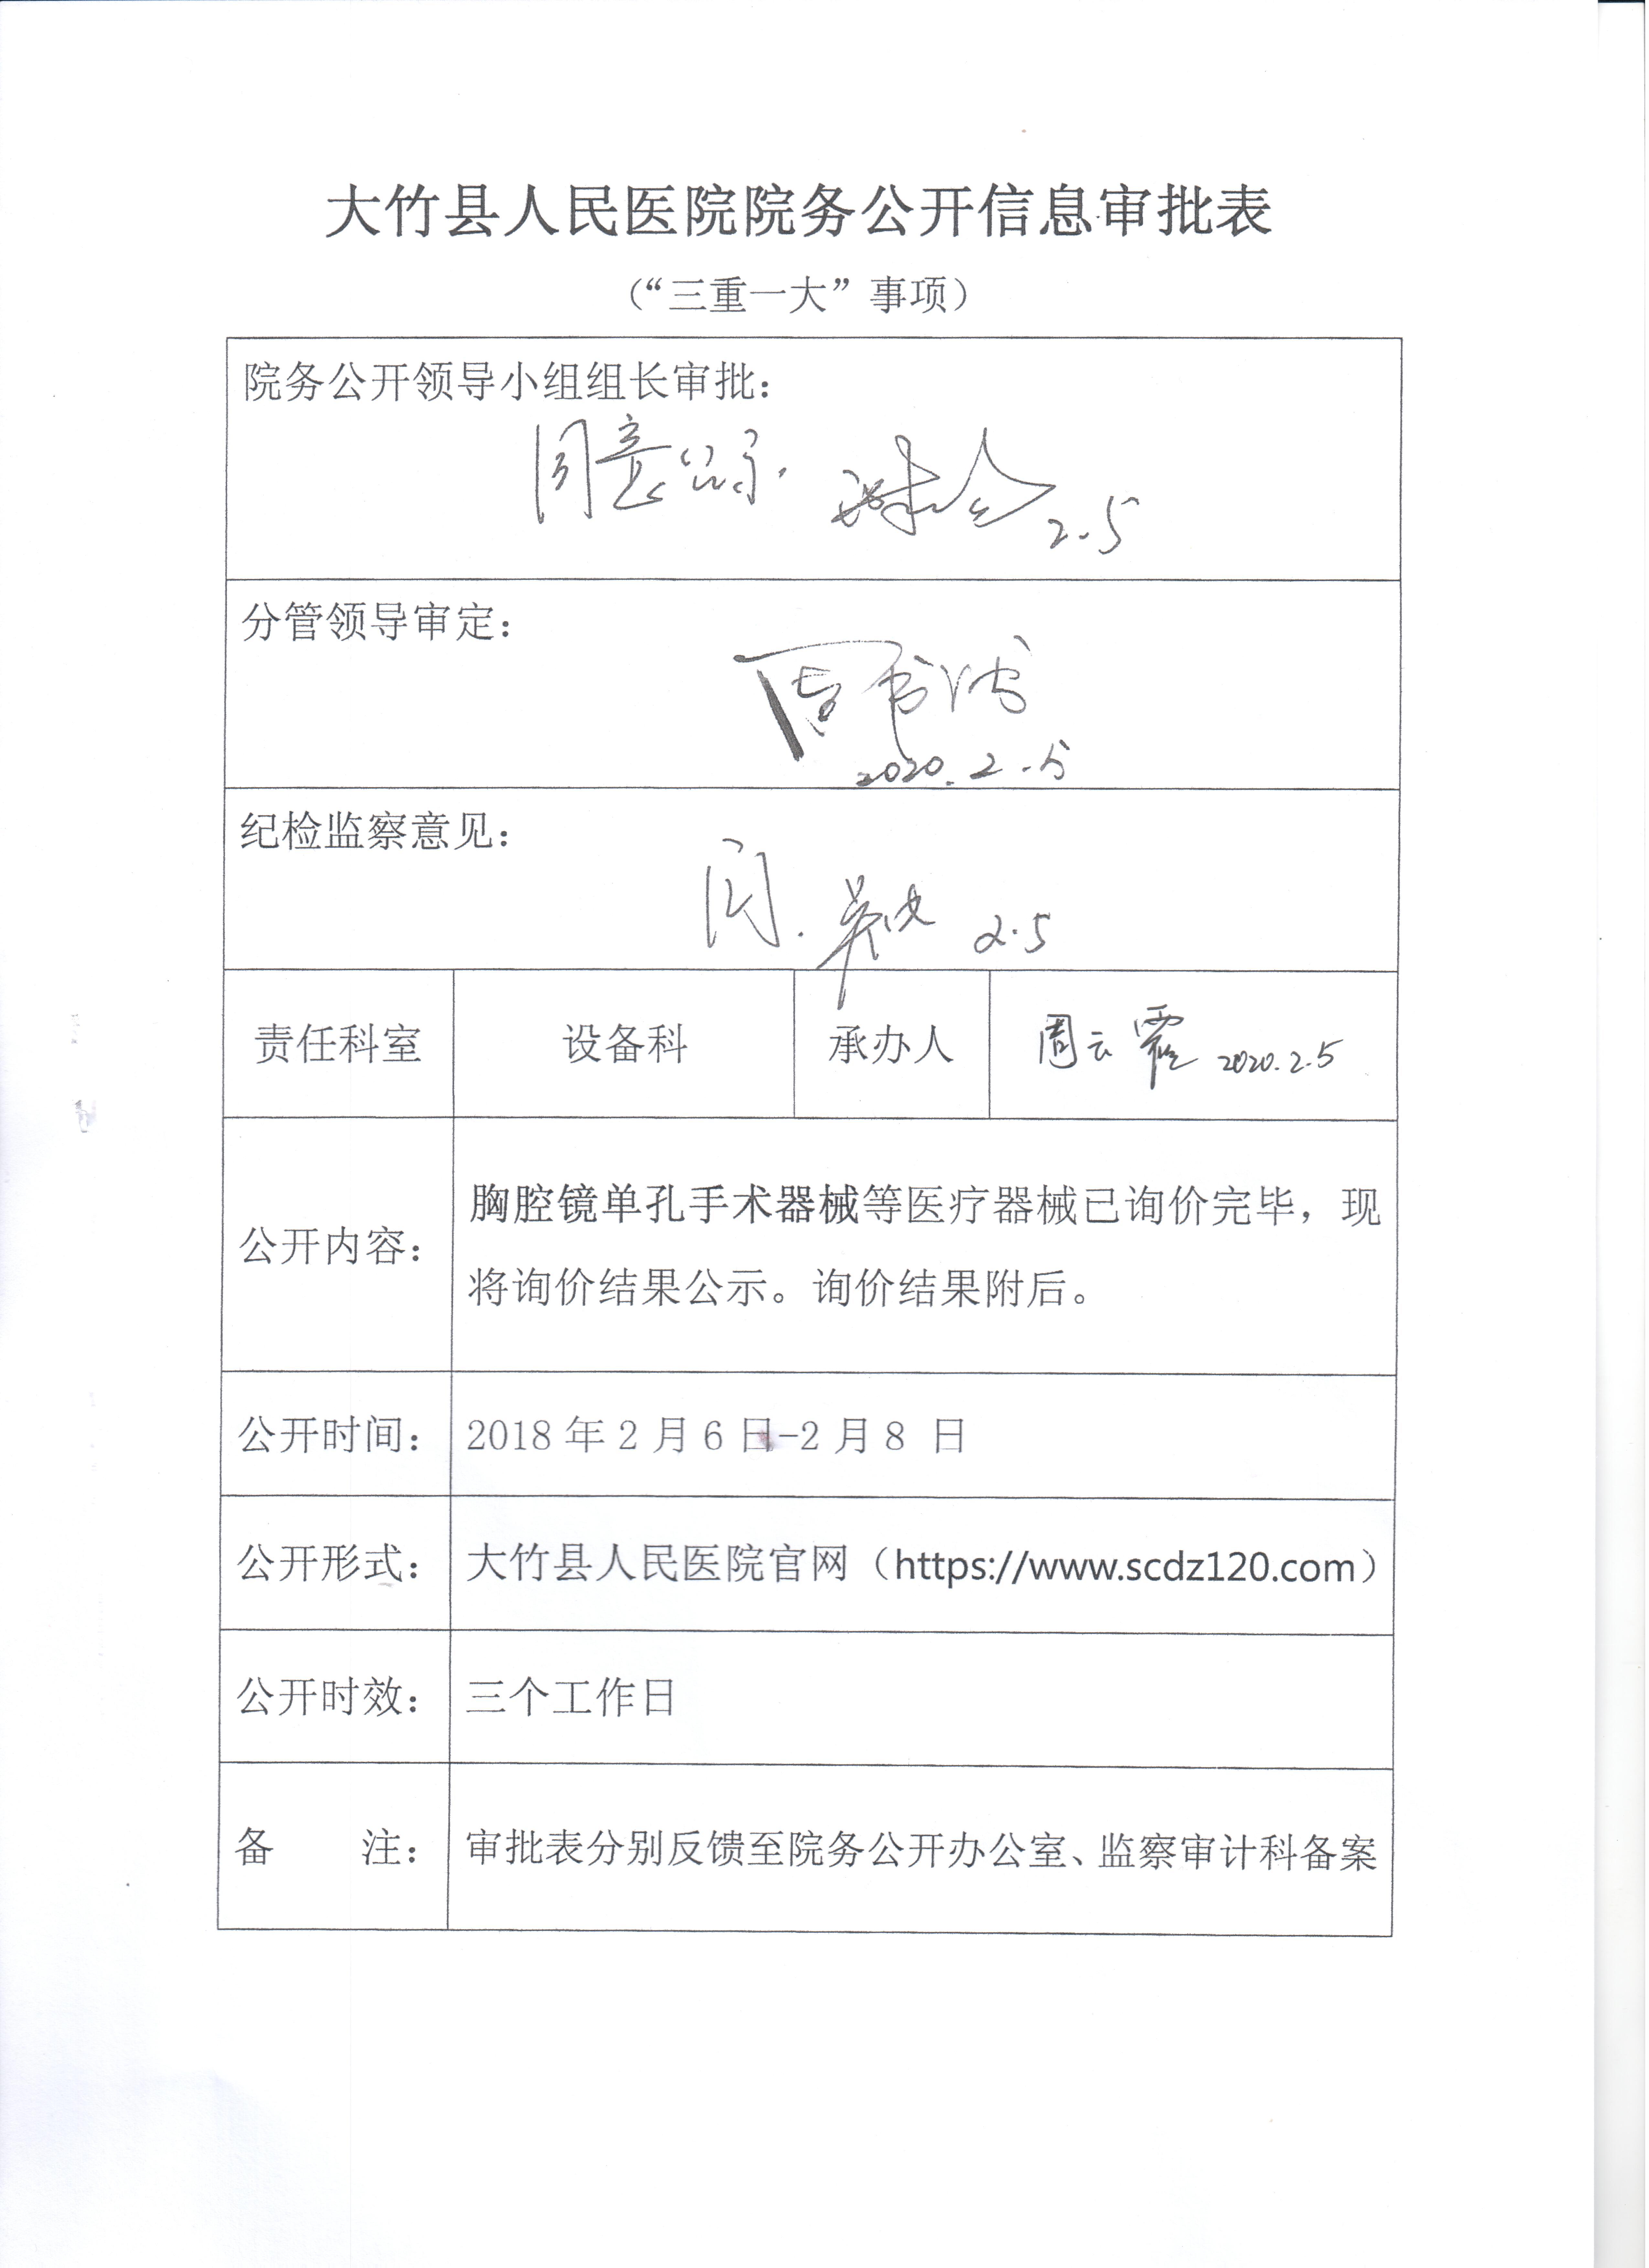 大竹县人民医院院务公开信息审批表
（“三重一大”事项）
院务公开领导小组组长审批：
同意公示. 2.5
分管领导审定：
2020.2.5
纪检监察意见：
2.5
责任科室 设备科 承办人 周云霞 2020.2.5
公开内容： 胸腔镜单孔手术器械等医疗器械已询价完毕，现
将询价结果公示。询价结果附后。
公开时间： 2018年2月6日-2月8 日
公开形式： 大竹县人民医院官网（https://www.scdz120.com）
公开时效： 三个工作日
备 注： 审批表分别反馈至院务公开办公室、监察审计科备案